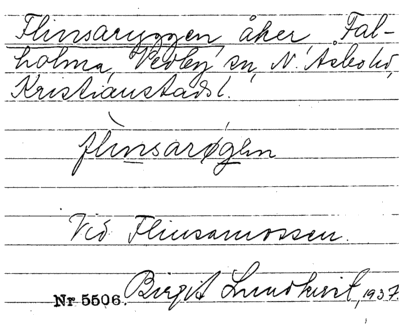 Flinsaryggen åker Fal-
holma, Vedby sn, N. Åsbo hd,
Kristianstads l.
flinsarøgen
Vid Flinsamossen.
Nr 5506. Birgit Lundkvist, 1937.